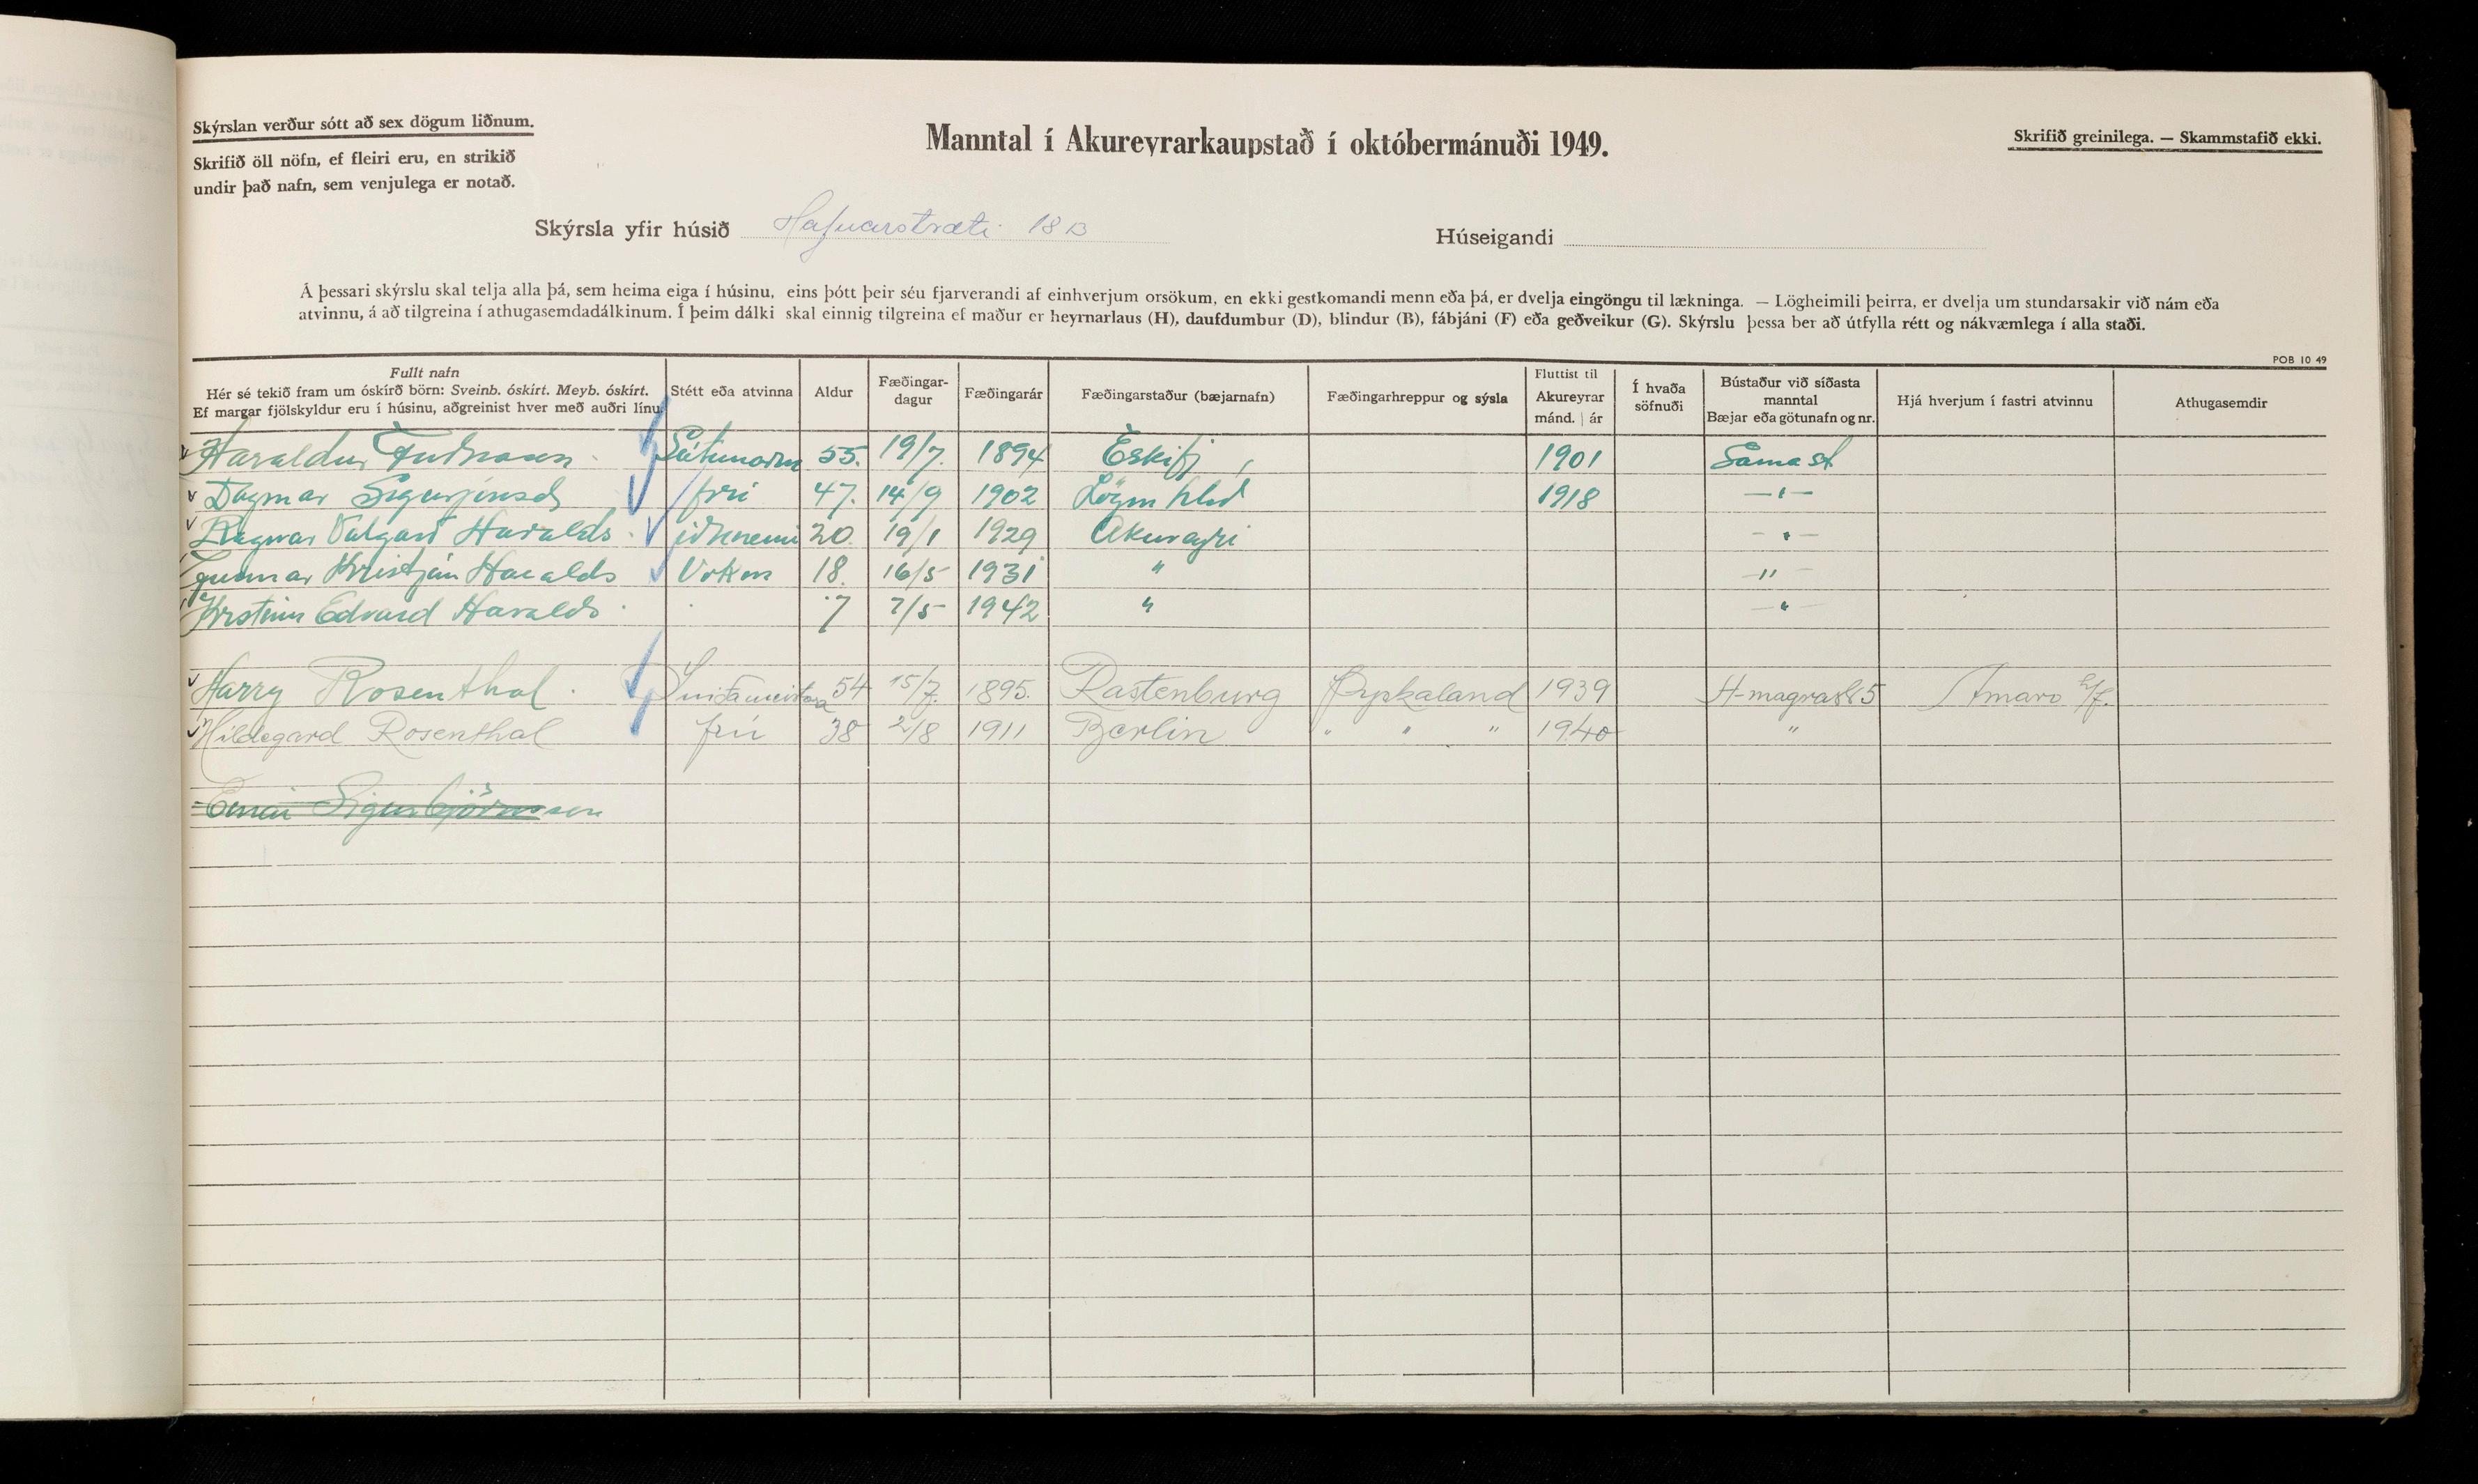 Skýrslan verður sótt að sex dögum liðnum.
Skrifið öll nöfn, ef fleiri eru, en strikið
undir það nafn, sem venjulega er notað.
Manntal í Akureyrarkaupstað í októbermánuði 1949.
Skrifið greinilega. — Skammstafið ekki.
Skýrsla yfir húsið Hafnarstræti 18 B
Húseigandi
Á þessari skýrslu skal telja alla þá, sem heima eiga í húsinu, eins þótt þeir séu fjarverandi af einhverjum orsökum, en ekki gestkomandi menn eða þá, er dvelja eingöngu til lækninga. — Lögheimili þeirra, er dvelja um stundarsakir við nám eða
atvinnu, á að tilgreina í athugasemdadálkinum. Í þeim dálki skal einnig tilgreina ef maður er heyrnarlaus (H), daufdumbur (D), blindur (B), fábjáni (F) eða geðveikur (G). Skýrslu þessa ber að útfylla rétt og nákvæmlega í alla staði.
POB 10 49
Fullt nafn
Hér sé tekið fram um óskírð börn: Sveinb. óskírt. Meyb. óskírt.
Ef margar fjölskyldur eru í húsinu, aðgreinist hver með auðri línu.
Stétt eða atvinna
Aldur
Fæðingar-
dagur
Fæðingarár
Fæðingarstaður (bæjarnafn)
Fæðingarhreppur og sýsla
Fluttist til
Akureyrar
mánd. | ár
Í hvaða
söfnuði
Bústaður við síðasta
manntal
Bæjar eða götunafn og nr.
Hjá hverjum í fastri atvinnu
Athugasemdir
Haraldur 55. 19/7. 1894 Eskifj 1901 Sama st
Dagmar Sigurjónsd frú 47. 14/9 1902 1918 — " —
Ragnar Valgarð Haralds. iðnnemi 20. 19/1 1929 Akureyri - " -
Gunnar Kristján Haralds 18. 16/5 1931 " — " —
Edvard Haralds. 7 7/5 1942 " — " —
Harry Rosenthal. 54 15/7. 1895. Rastenburg Þýzkaland 1939 Amaro h/f.
Hildegard Rosenthal frú 38 2/8 1911 Berlin " " " 1940 "